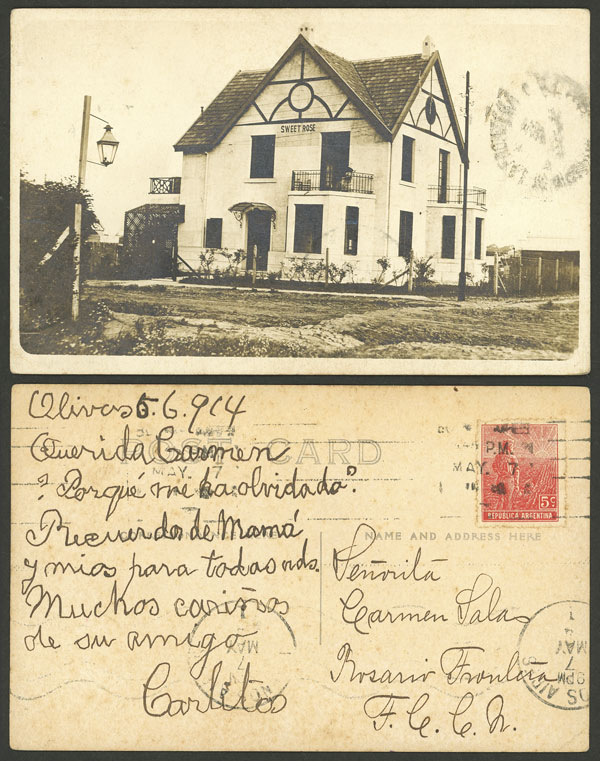 SWEET ROSE
Olivos 5.6.914
Querida Carmen
? Porqué me ha olvidado?
Recuerdos de Mamá
y mios para todas uds.
Muchos cariños
de su amigo
Carlitos
POST CARD
MAY 7
P.M.
MAY 7
5c
REPUBLICA ARGENTINA
NAME AND ADDRESS HERE
Señorita
Carmen Salas
Rosario Frontera
F.C.C.N.
MAY
7
MAY
7
PM